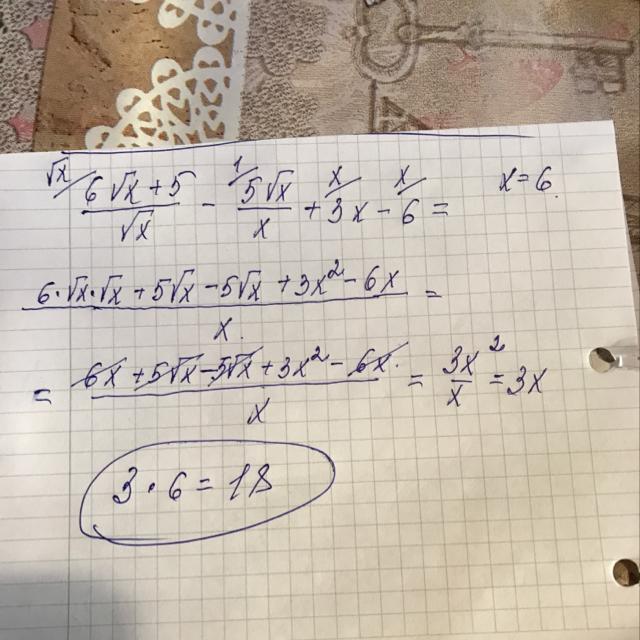 √x/ (6√x + 5)/√x - 1/ 5√x/x + x/ 3x - x/ 6 = x = 6.
(6·√x·√x + 5√x - 5√x + 3x² - 6x)/x. =
= (6x + 5√x - 5√x + 3x² - 6x.)/x = 3x²/x = 3x
3 · 6 = 18